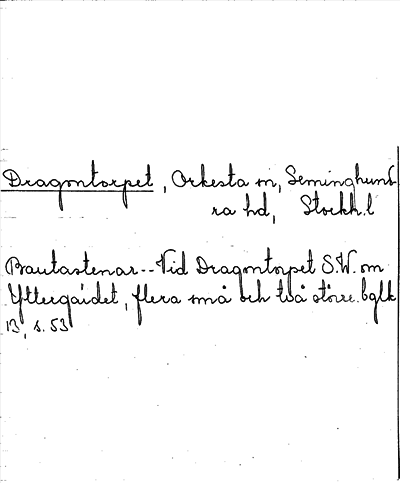 Dragontorpet, Orkesta sn, Seminghund-
ra hd, Stockh.l
Bautastenar -- Vid Dragontorpet S.W. om
Yttergärdet, flera små och två större. bglk
13, s. 53